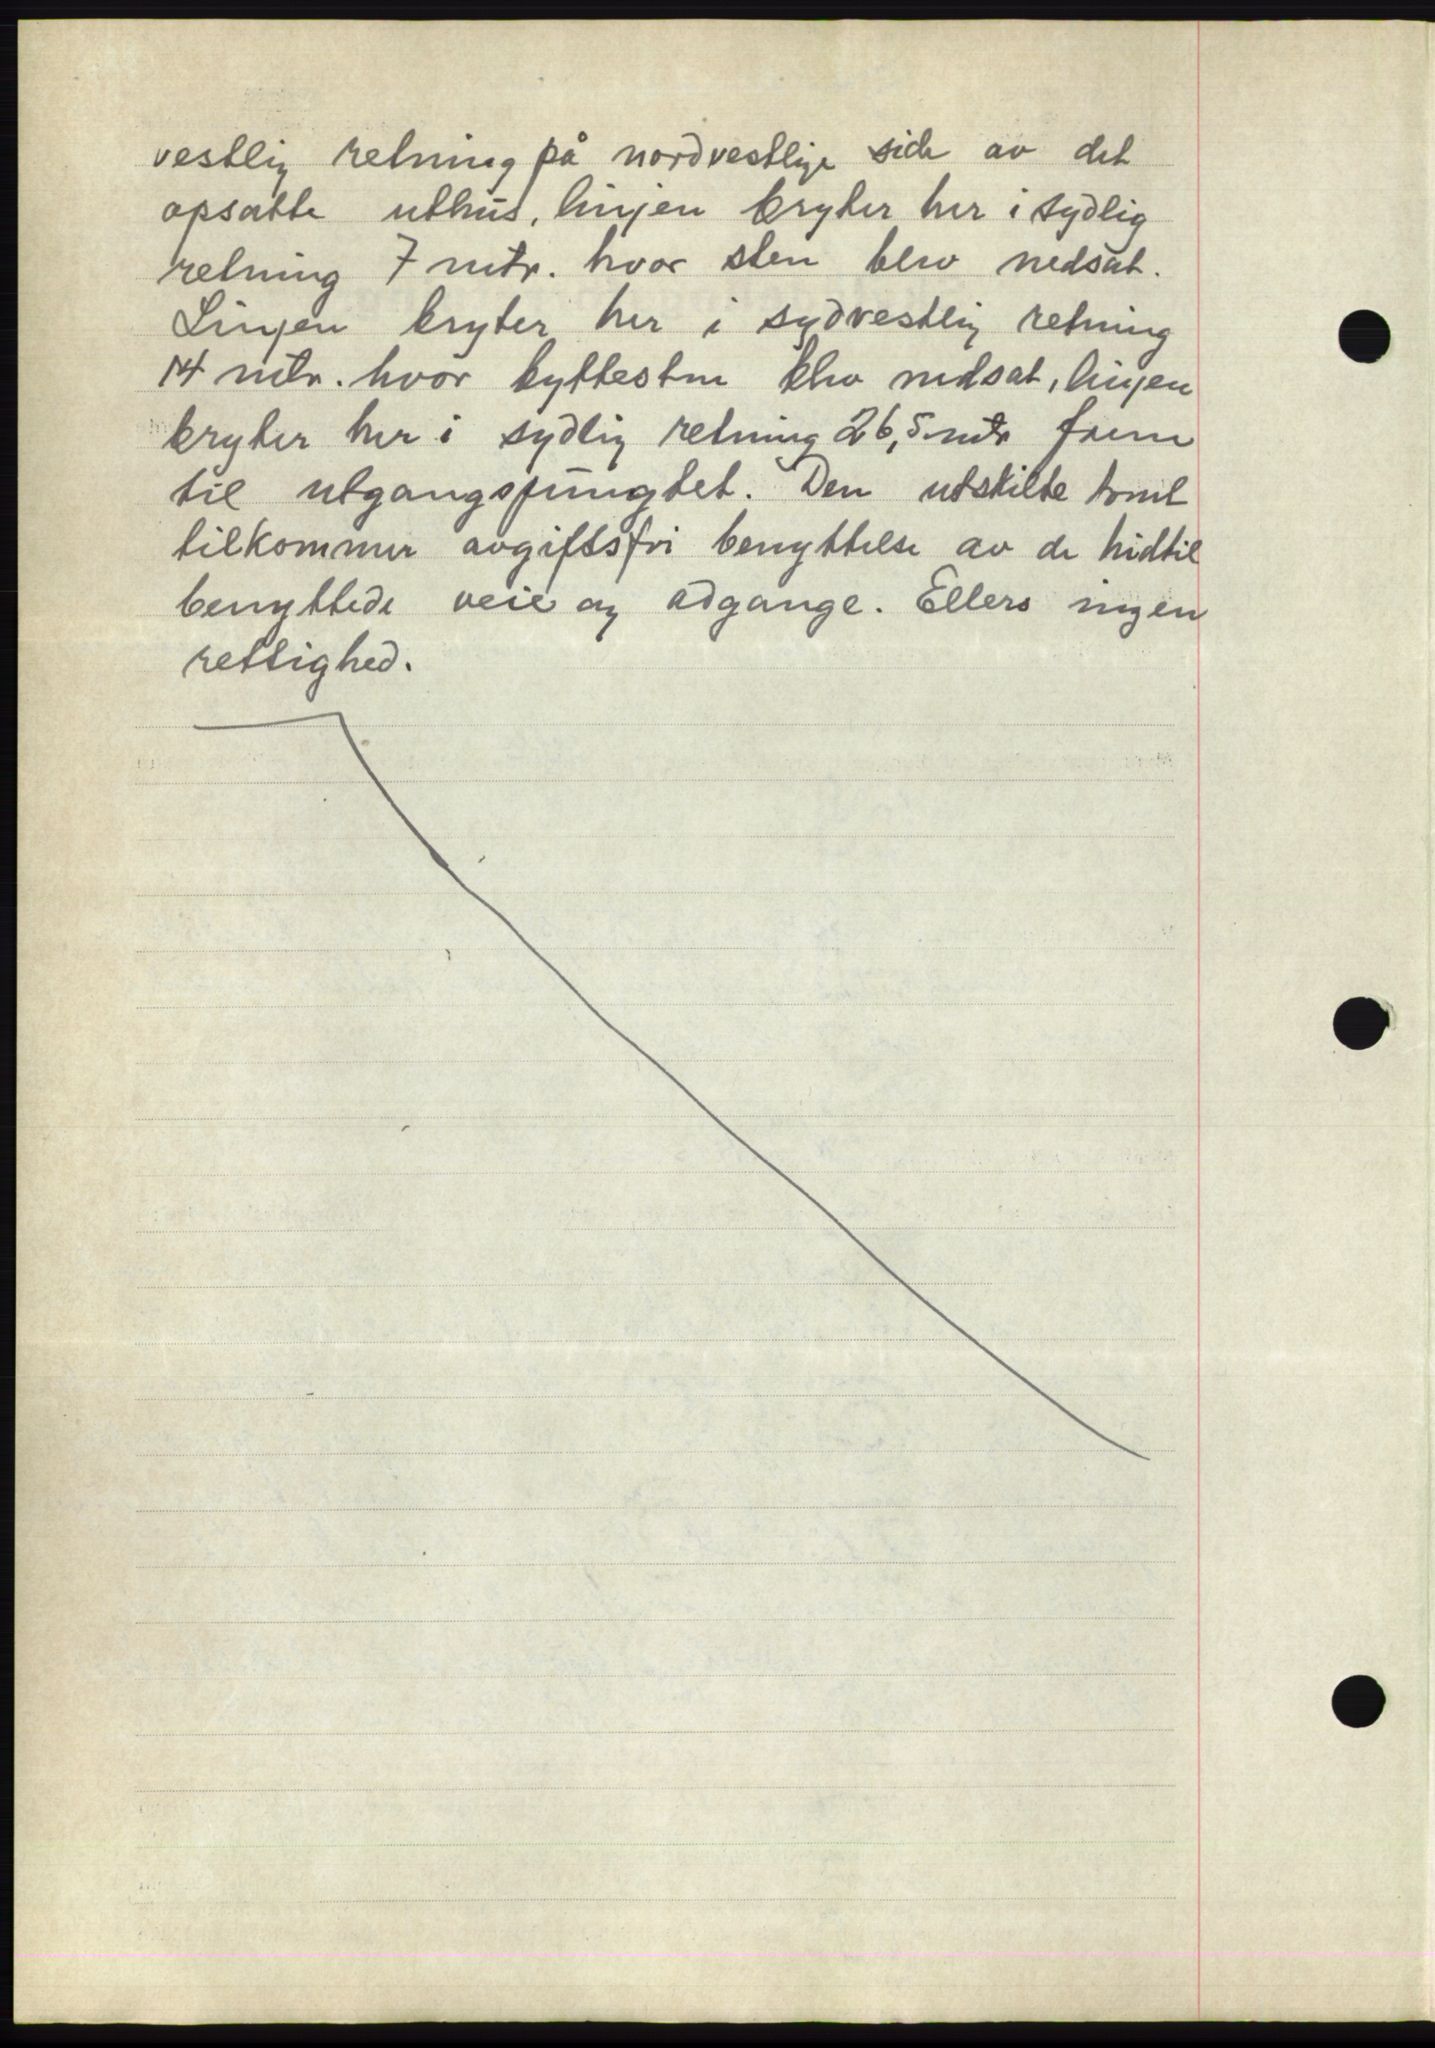 vestlig retning på nordvestlige side av det
opsatte uthus, linjen bryter her i sydlig
retning 7 mtr. hvor sten blev nedsat.
Linjen bryter her i sydvestlig retning
14 mtr. hvor byttesten blev nedsat, linjen
bryter her i sydlig retning 26,5 mtr frem
til utgangspungtet. Den utskilte tomt
tilkommer avgiftsfri benyttelse av de hidtil
benyttede veie og adgange. Ellers ingen
rettighed.